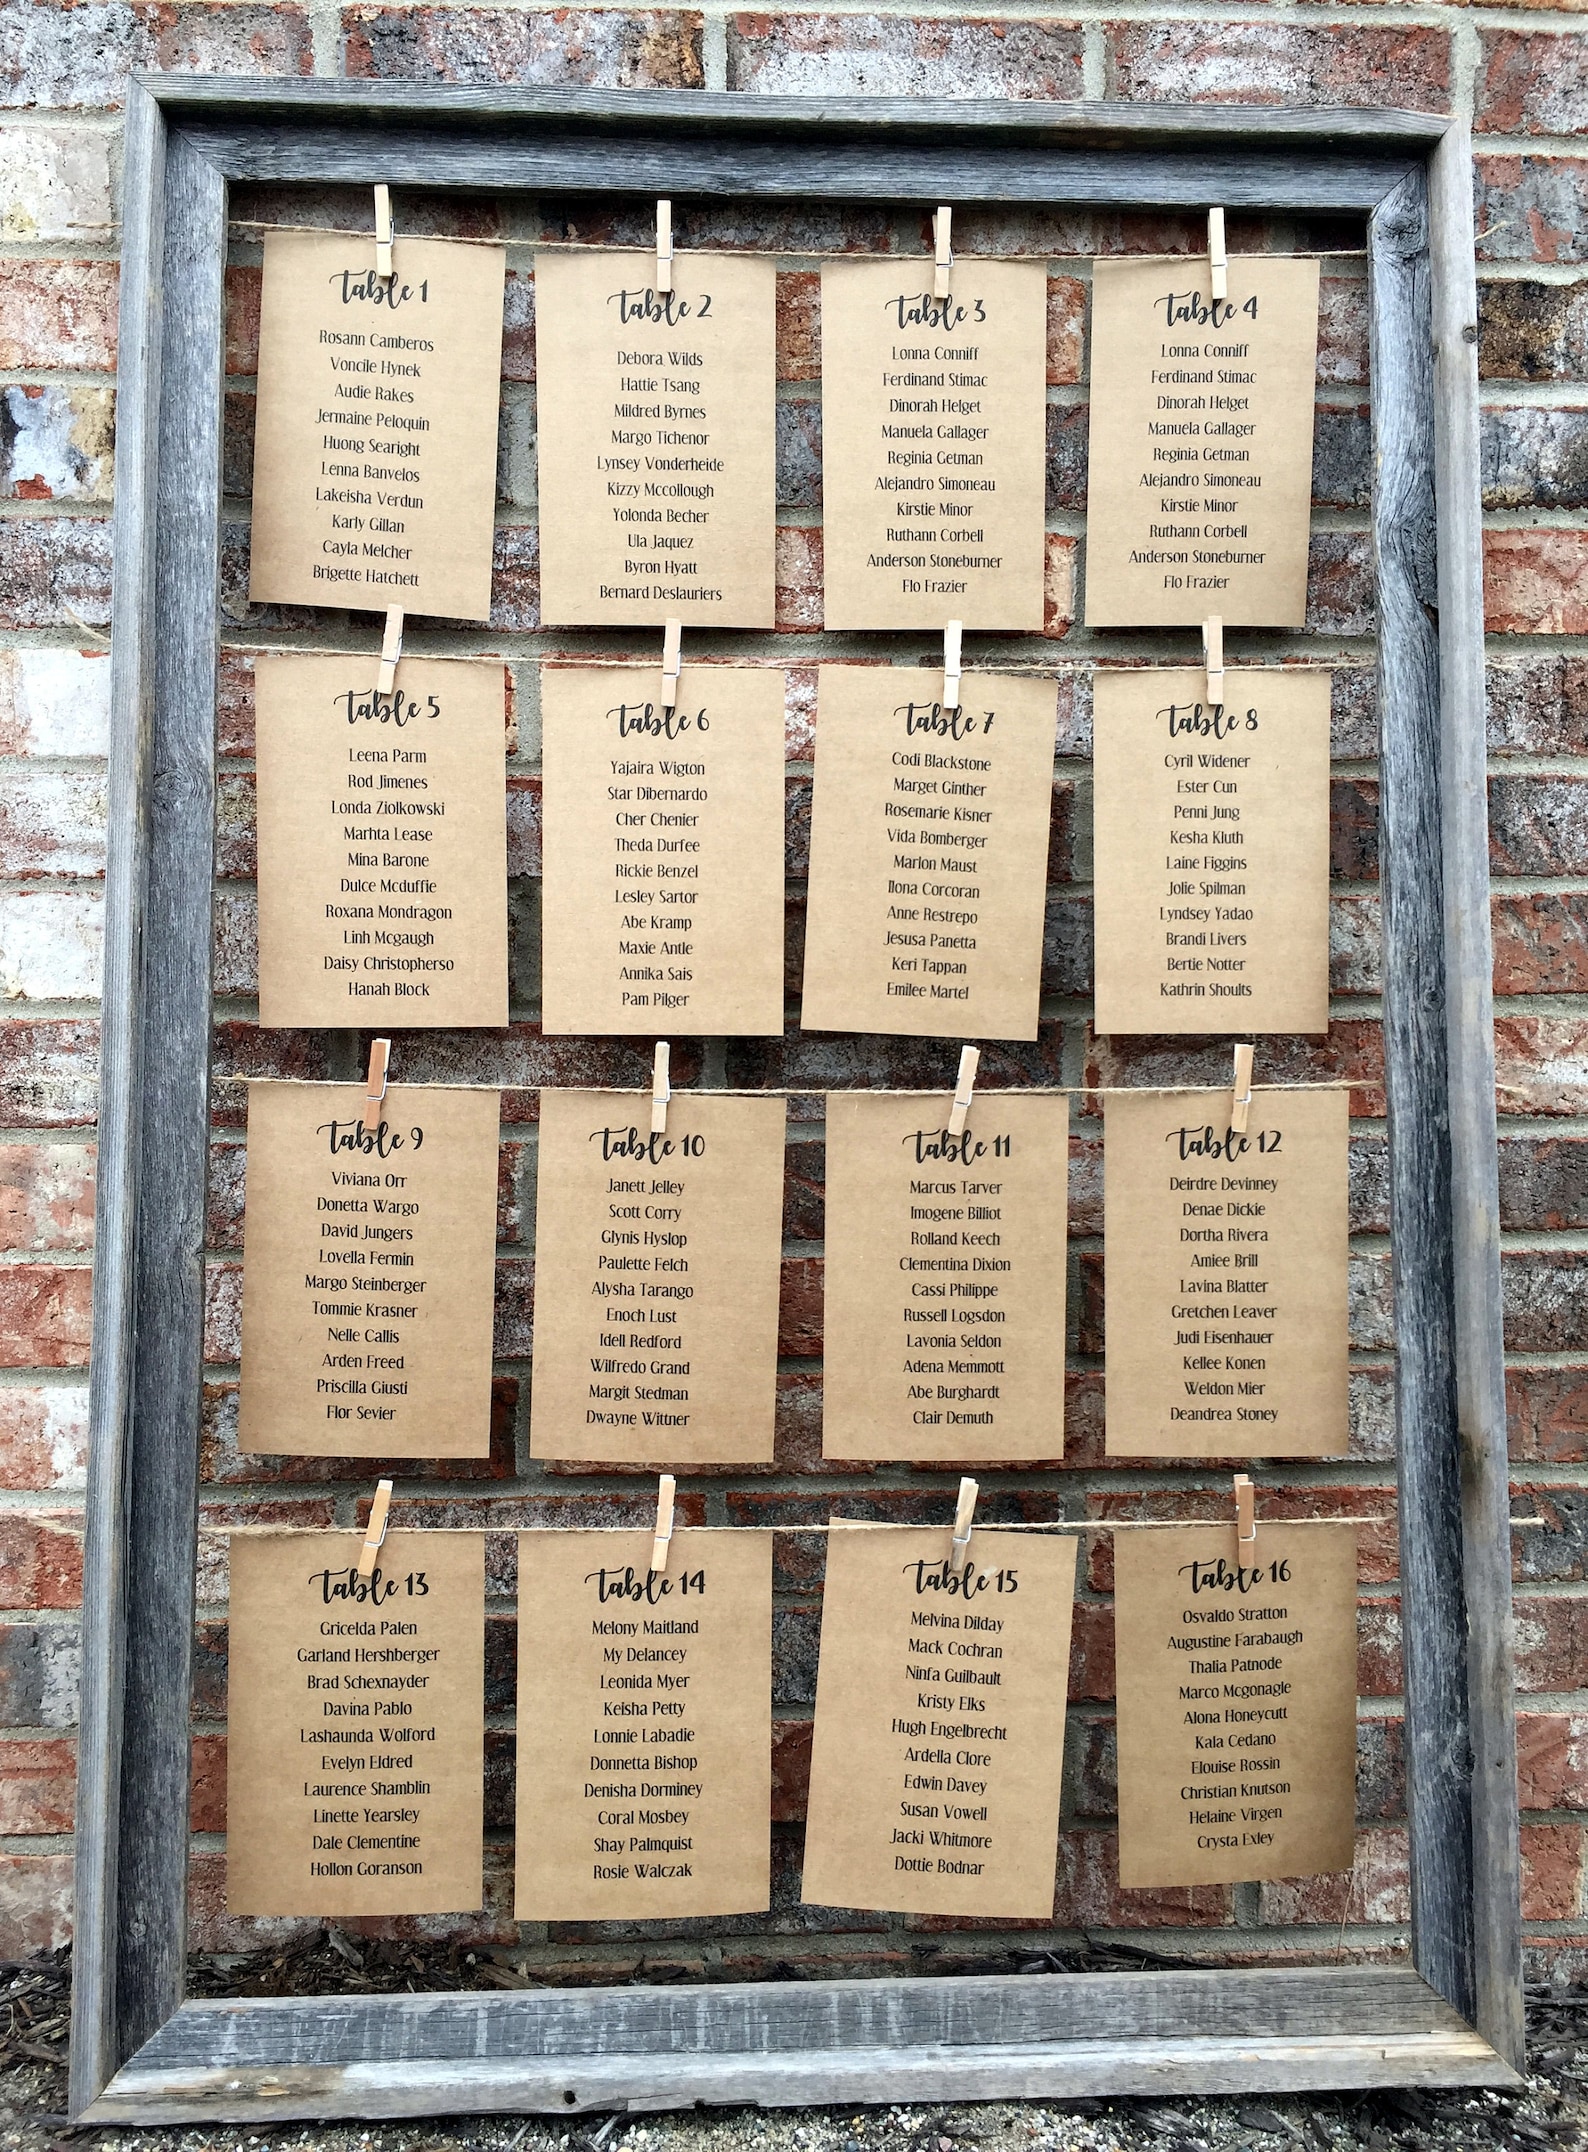 Table 1
Rosann Camberos
Voncile Hynek
Audie Rakes
Jermaine Peloquin
Huong Searight
Lenna Banvelos
Lakeisha Verdun
Karly Gillan
Cayla Melcher
Brigette Hatchett
Table 2
Debora Wilds
Hattie Tsang
Mildred Byrnes
Margo Tichenor
Lynsey Vonderheide
Kizzy Mccollough
Yolonda Becher
Ula Jaquez
Byron Hyatt
Bernard Deslauriers
Table 3
Lonna Conniff
Ferdinand Stimac
Dinorah Helget
Manuela Gallager
Reginia Getman
Alejandro Simoneau
Kirstie Minor
Ruthann Corbell
Anderson Stoneburner
Flo Frazier
Table 4
Lonna Conniff
Ferdinand Stimac
Dinorah Helget
Manuela Gallager
Reginia Getman
Alejandro Simoneau
Kirstie Minor
Ruthann Corbell
Anderson Stoneburner
Flo Frazier
Table 5
Leena Parm
Rod Jimenes
Londa Ziolkowski
Marhta Lease
Mina Barone
Dulce Mcduffie
Roxana Mondragon
Linh Mcgaugh
Daisy Christopherso
Hanah Block
Table 6
Yajaira Wigton
Star Dibernardo
Cher Chenier
Theda Durfee
Rickie Benzel
Lesley Sartor
Abe Kramp
Maxie Antle
Annika Sais
Pam Pilger
Table 7
Codi Blackstone
Marget Ginther
Rosemarie Kisner
Vida Bomberger
Marlon Maust
Ilona Corcoran
Anne Restrepo
Jesusa Panetta
Keri Tappan
Emilee Martel
Table 8
Cyril Widener
Ester Cun
Penni Jung
Kesha Kluth
Laine Figgins
Jolie Spilman
Lyndsey Yadao
Brandi Livers
Bertie Notter
Kathrin Shoults
Table 9
Viviana Orr
Donetta Wargo
David Jungers
Lovella Fermin
Margo Steinberger
Tommie Krasner
Nelle Callis
Arden Freed
Priscilla Giusti
Flor Sevier
Table 10
Janett Jelley
Scott Corry
Glynis Hyslop
Paulette Felch
Alysha Tarango
Enoch Lust
Idell Redford
Wilfredo Grand
Margit Stedman
Dwayne Wittner
Table 11
Marcus Tarver
Imogene Billiot
Rolland Keech
Clementina Dixion
Cassi Philippe
Russell Logsdon
Lavonia Seldon
Adena Memmott
Abe Burghardt
Clair Demuth
Table 12
Deirdre Devinney
Denae Dickie
Dortha Rivera
Amiee Brill
Lavina Blatter
Gretchen Leaver
Judi Eisenhauer
Kellee Konen
Weldon Mier
Deandrea Stoney
Table 13
Gricelda Palen
Garland Hershberger
Brad Schexnayder
Davina Pablo
Lashaunda Wolford
Evelyn Eldred
Laurence Shamblin
Linette Yearsley
Dale Clementine
Hollon Goranson
Table 14
Melony Maitland
My Delancey
Leonida Myer
Keisha Petty
Lonnie Labadie
Donnetta Bishop
Denisha Dorminey
Coral Mosbey
Shay Palmquist
Rosie Walczak
Table 15
Melvina Dilday
Mack Cochran
Ninfa Guilbault
Kristy Elks
Hugh Engelbrecht
Ardella Clore
Edwin Davey
Susan Vowell
Jacki Whitmore
Dottie Bodnar
Table 16
Osvaldo Stratton
Augustine Farabaugh
Thalia Patnode
Marco Mcgonagle
Alona Honeycutt
Kala Cedano
Elouise Rossin
Christian Knutson
Helaine Virgen
Crysta Exley